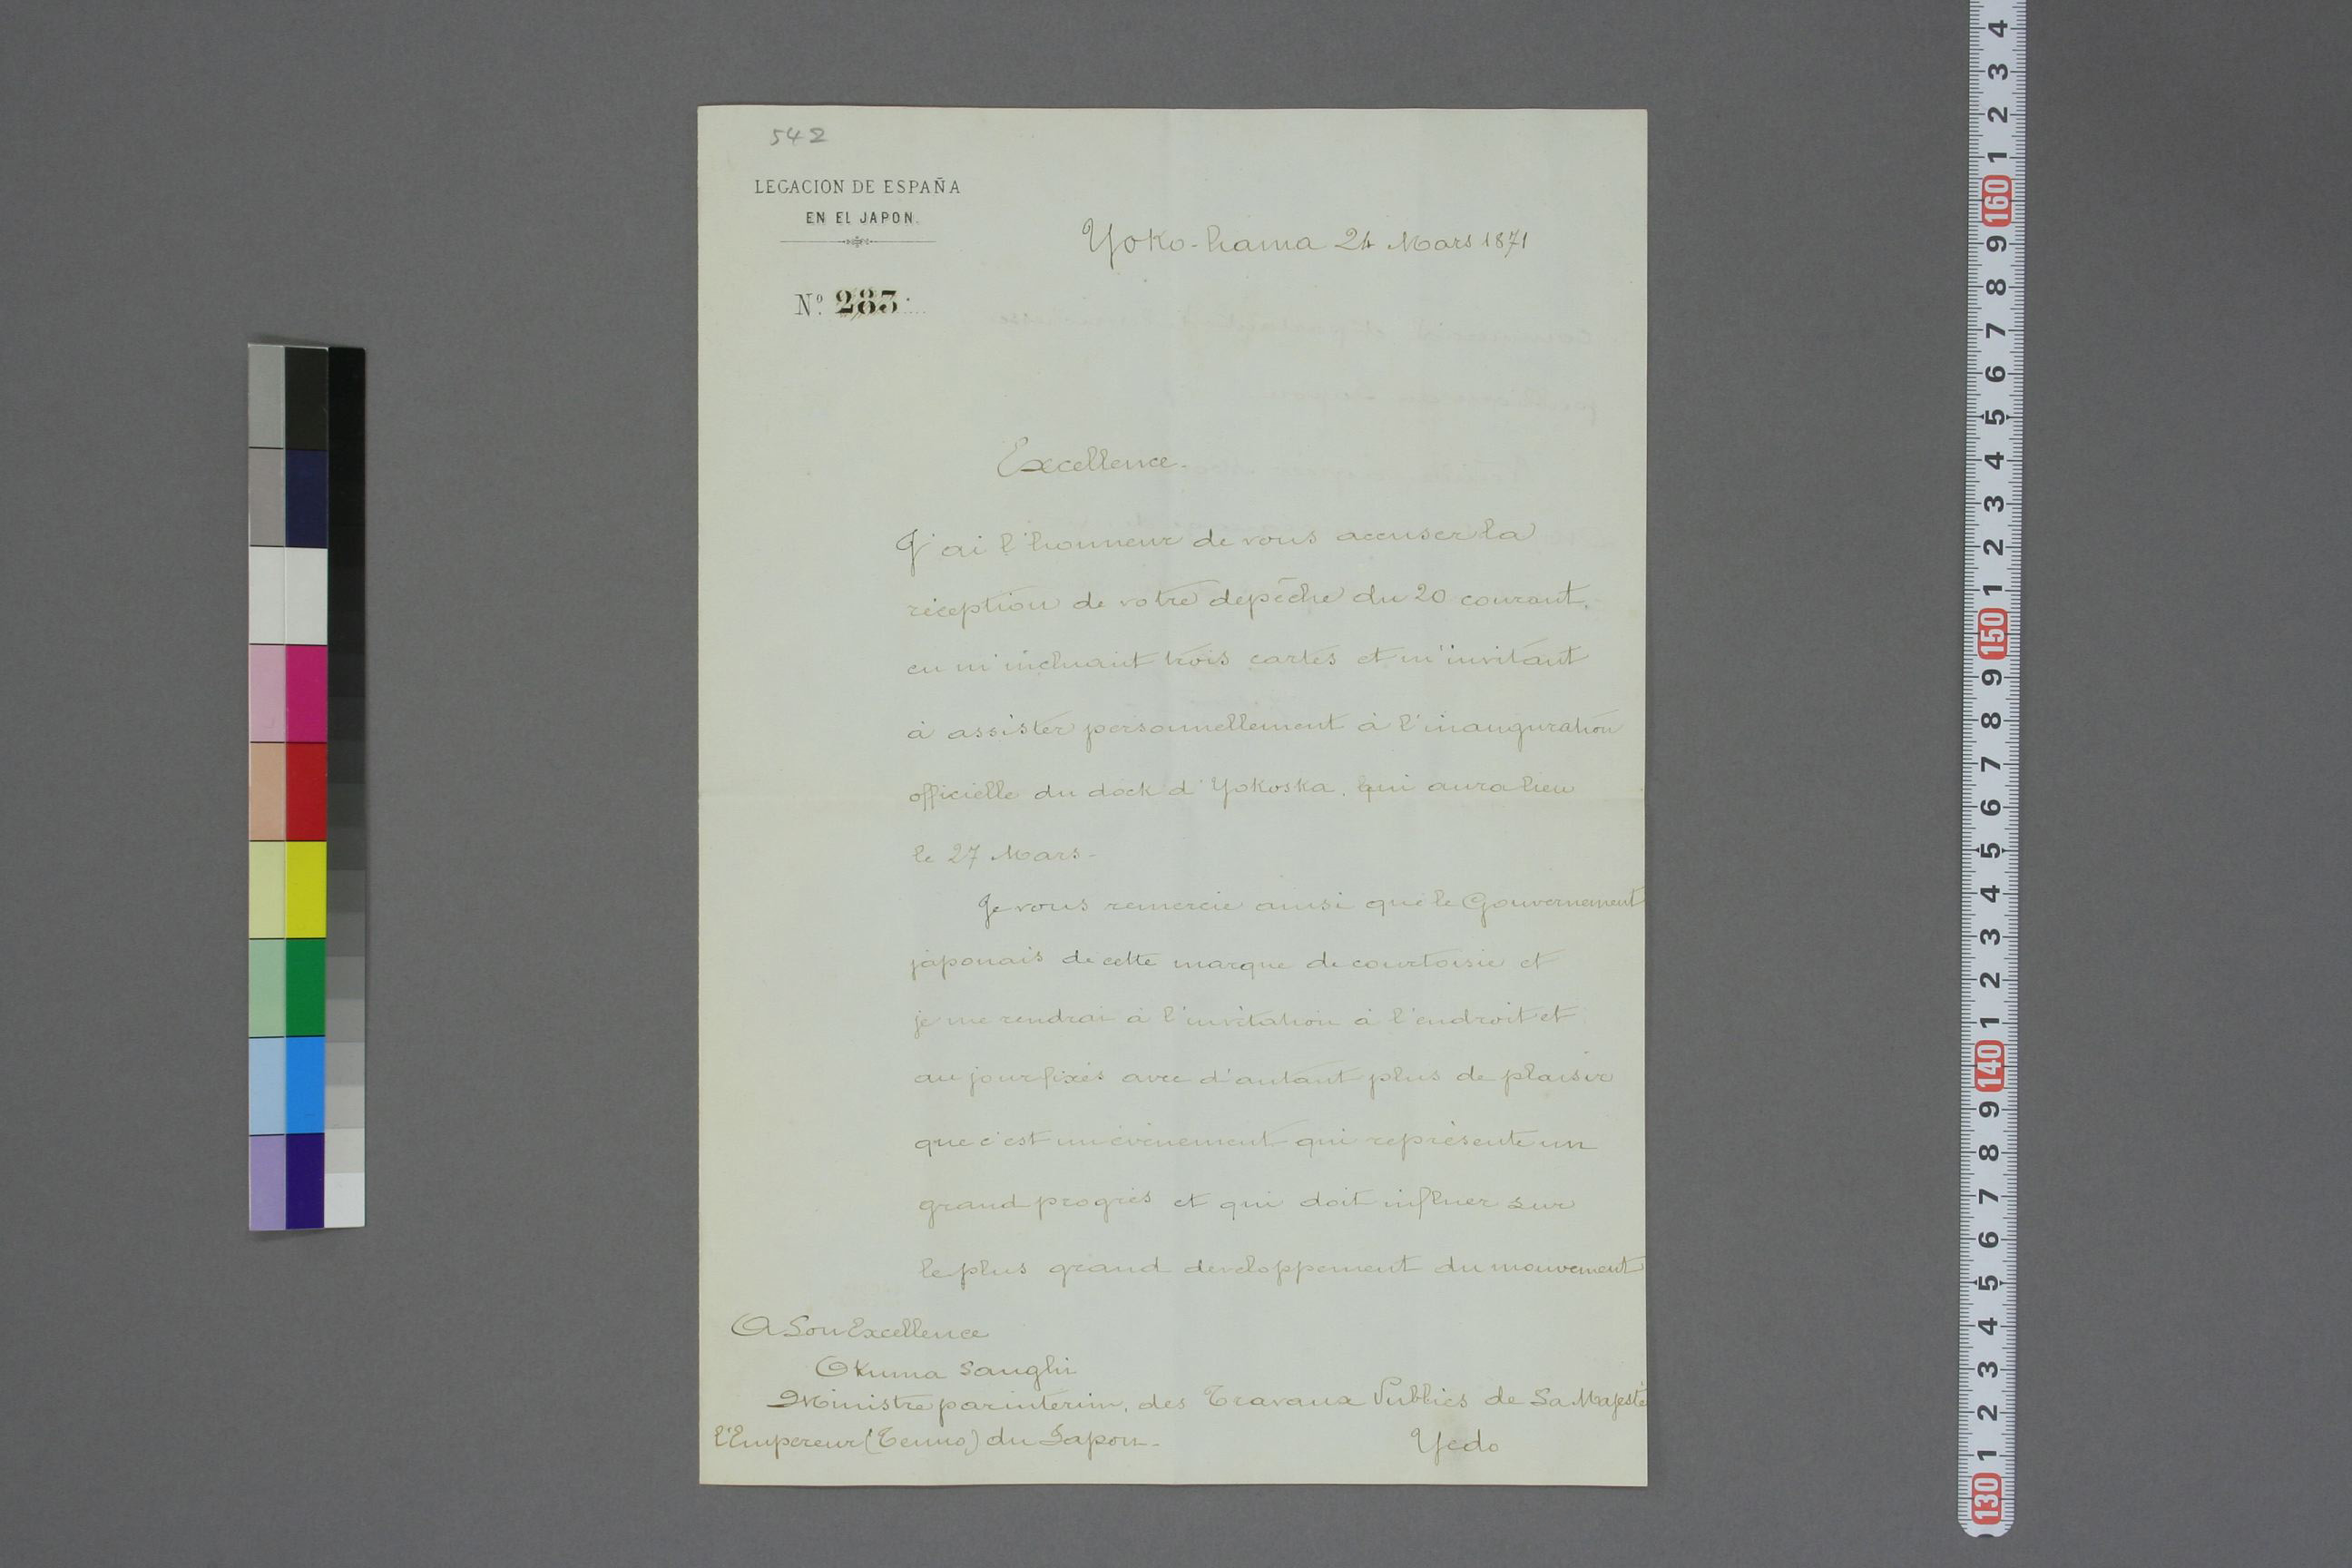 542
LEGACION DE ESPAÑA
EN EL JAPON.
Yoko-hama 24 Mars 1871
Nº. 283.
Excellence.
J'ai l'honneur de vous accuser la
réception de votre depêche du 20 courant,
en m'incluant trois cartes et m'invitant
à assister personnellement à l'inauguration
officielle du dock d'Yokoska, qui aura lieu
le 27 Mars-
Je vous remercie ainsi que le Gouvernement
japonais de cette marque de courtoisie et
je me rendrai à l'invitation à l'endroit et
au jour fixés avec d'autant plus de plaisir
que c'est un évènement qui représente un
grand progrès et qui doit influer sur
le plus grand developpement du mouvement
A Son Excellence
Okuma Sanghi
Ministre par interim, des Travaux Publics de Sa Majesté
l'Empereur (Tenno) du Japon-
Yedo
4
3
2
1
160
9
8
7
6
5
4
3
2
1
150
9
8
7
6
5
4
3
2
1
140
9
8
7
6
5
4
3
2
1
130